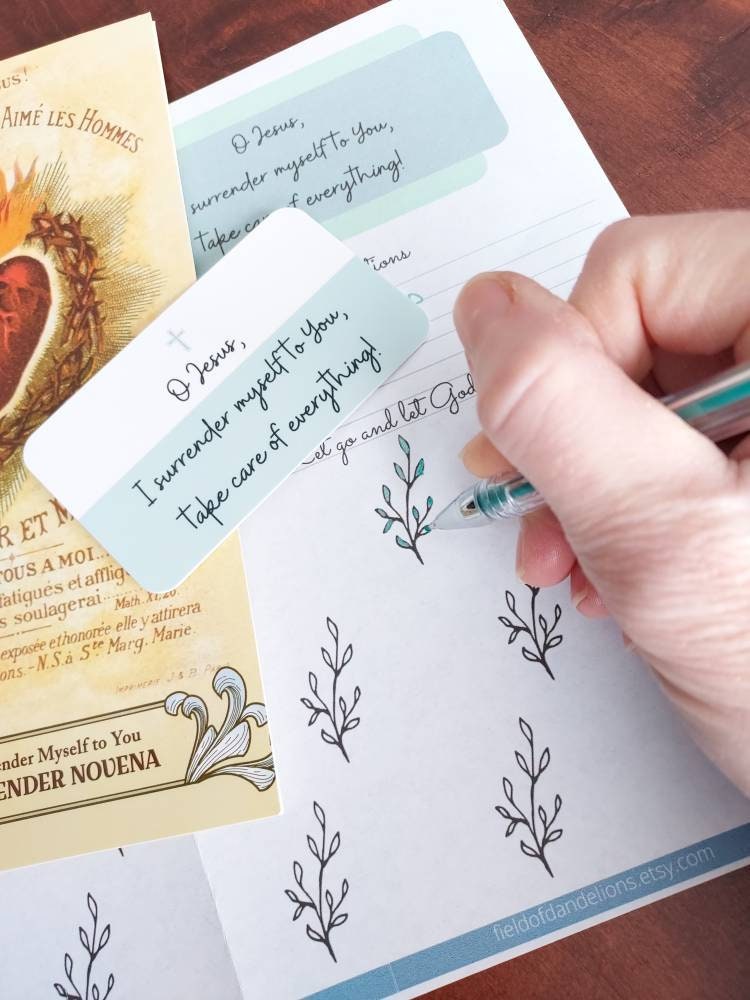 SUS!
AIMÉ LES HOMMES
R ET M
TOUS A MOI...
fatigués et afflig
s soulagerai......
Math. XI. 28
exposée et honorée elle y attirera
ons.-N.S. à Ste Marg. Marie.
IMPRIMERIE J & B
ender Myself to You
ENDER NOVENA
O Jesus,
surrender myself to You,
take care of everything!
tions
Let go and let God
O Jesus,
I surrender myself to You,
take care of everything!
fieldofdandelions.etsy.com